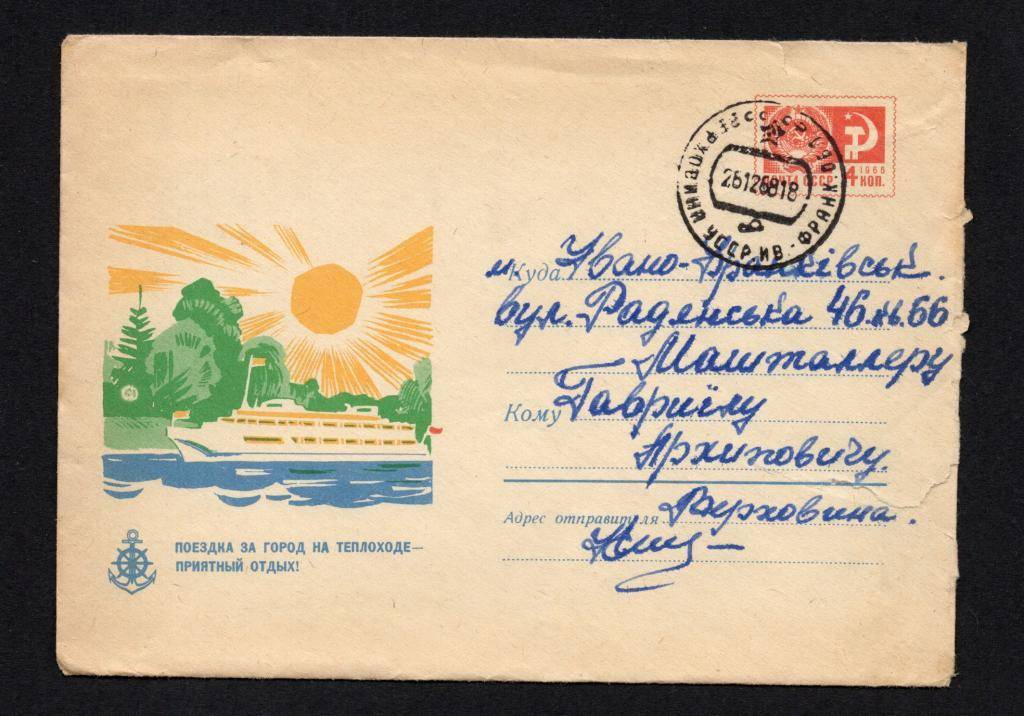 ПОЧТА СССР
1966
4 КОП.
ВЕРХОВИНА УССР ИВ.-ФРАНК. ОБЛ.
26126818
Куда м. Івано-Франківськ.
вул. Радянська 46 кв. 66
Машталлеру
Кому Гавриїлу
Архиповичу.
Адрес отправителя Верховина.
ПОЕЗДКА ЗА ГОРОД НА ТЕПЛОХОДЕ—
ПРИЯТНЫЙ ОТДЫХ!